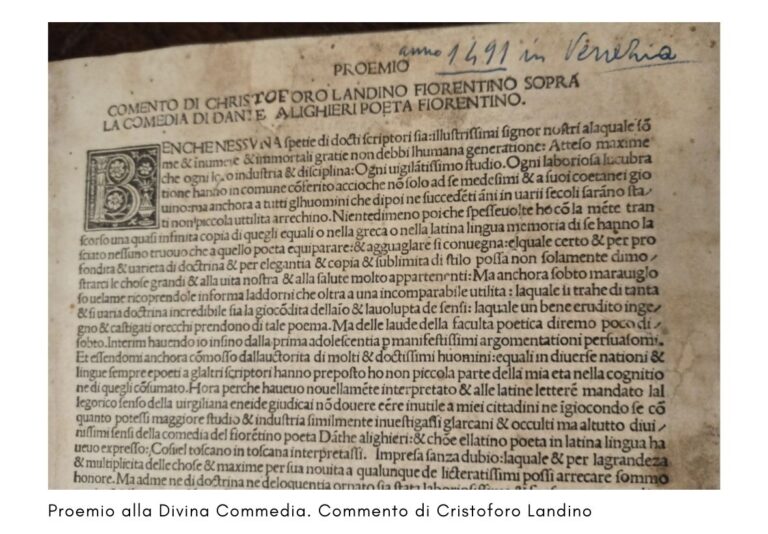 anno 1491 in Venethia
PROEMIO
COMENTO DI CHRISTOFORO LANDINO FIORENTINO SOPRA
LA COMEDIA DI DANTE ALIGHIERI POETA FIORENTINO.
BENCHE NESSVNA spetie di docti scriptori sia: illustrissimi signor nostri alaquale sō
me & inumere & immortali gratie non debbi lhumana generatione: Atteso maxime
che ogni loro industria & disciplina: Ogni uigilātissimo studio. Ogni laboriosa lucubra
tione hanno in comune cōferito accioche nō solo ad se medesimi & a suoi coetanei gio
uino: ma anchora a tutti glhuomini che dipoi ne succedēti āni in uarii secoli sarāno sta
ti non piccola uttilita arrechino. Nientedimeno poi che spesseuolte ho cō la mēte tran
scorso una quasi infinita copia di quegli equali o nella greca o nella latina lingua memoria di se hanno la
sciato nessuno truouo che a quello poeta equiparare: & agguaglare si conuegna: elquale certo & per pro
fondita & uarieta di doctrina & per elegantia & copia & sublimita di stilo possa non solamente dimo
strarci le chose grandi & alla uita nostra & alla salute molto appartenenti: Ma anchora sobto marauiglo
so uelame ricoprendole informa laddorni che oltra a una incomparabile utilita: laquale si trahe di tanta
& si uaria doctrina incredibile sia la giocōdita dellaīo & lauolupta de sensi: laquale un bene erudito inge
gno & castigati orecchi prendono di tale poema. Ma delle laude della faculta poetica diremo poco di
sobto. Interim hauendo io infino dalla prima adolescentia p manifestissimi argomentationi persuasomi.
Et essendomi anchora cōmosso dallauctorita di molti & doctissimi huomini: equali in diuerse nationi &
lingue sempre epoeti a glaltri scriptori hanno preposto ho non piccola parte della mia eta nella cognitio
ne di quegli cōsumato. Hora perche haueuo nouellamēte interpretato & alle latine letterē mandato lal
legorico senso della uirgiliana eneide giudicai nō douere eēre inutile a miei cittadini ne īgiocondo se cō
quanto potessi maggiore studio & industria similmente inuestigassi glarcani & occulti ma altutto diui
nissimi sensi della comedia del fiorētino poeta Dāthe alighieri: & chōe ellatino poeta in latina lingua ha
ueuo expresso: Cosi el toscano in toscana interpretassi. Impresa sanza dubio: laquale & per lagrandeza
& multiplicita delle chose & maxime per sua nouita a qualunque de licteratissimi possi arrecare sommo
honore. Ma adme ne di doctrina ne deloquentia ornato sia stata
Proemio alla Divina Commedia. Commento di Cristoforo Landino